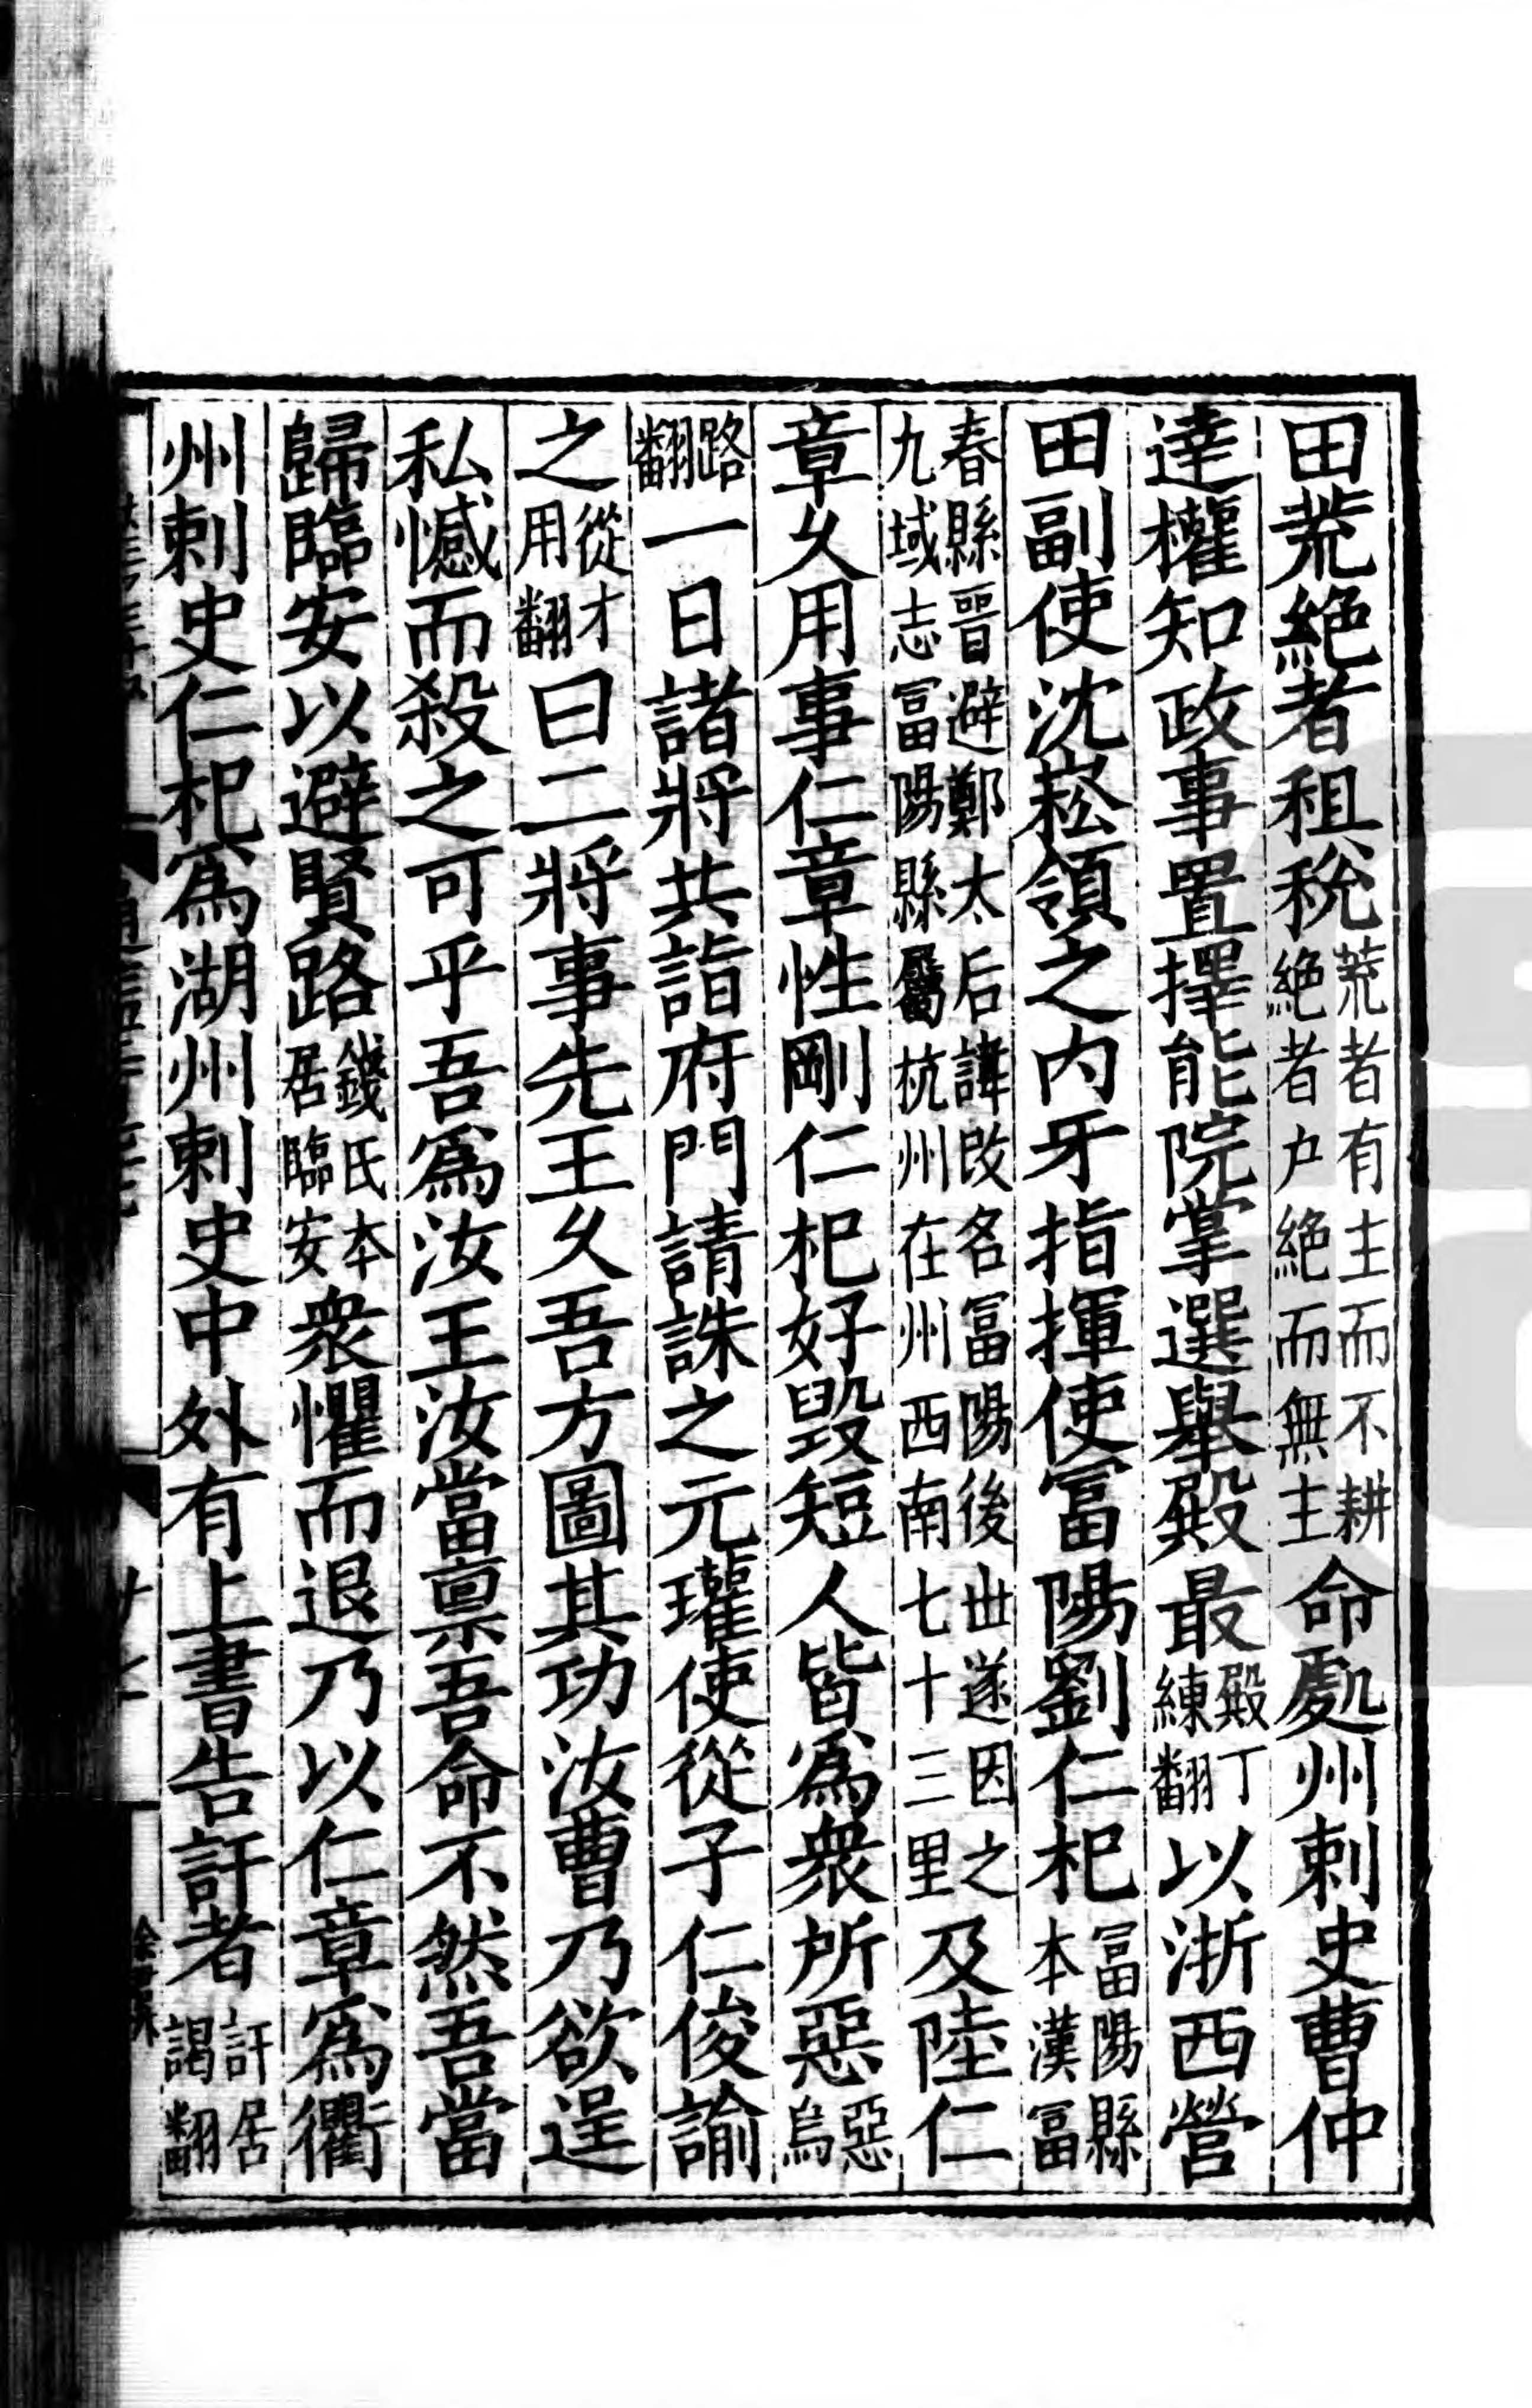 田荒絶者租稅荒者有主而不耕絶者户絶而無主命處州刺史曹仲
達權知政事置擇能院掌選舉殿最殿丁練翻以浙西營
田副使沈崧領之内牙指揮使冨陽劉仁杞冨陽縣本漢冨
春縣晉避鄭太后諱改名冨陽後世遂因之九域志冨陽縣屬杭州在州西南七十三里及陸仁
章久用事仁章性剛仁杞好毀短人皆爲衆所惡惡烏
路翻一日諸將共詣府門請誅之元瓘使從子仁俊諭
之從才用翻曰二將事先王久吾方圖其功汝曹乃欲逞
私憾而殺之可乎吾爲汝王汝當禀吾命不然吾當
歸臨安以避賢路錢氏本居臨安衆懼而退乃以仁章爲衢
州刺史仁杞爲湖州刺史中外有上書告訐者訐居謁翻